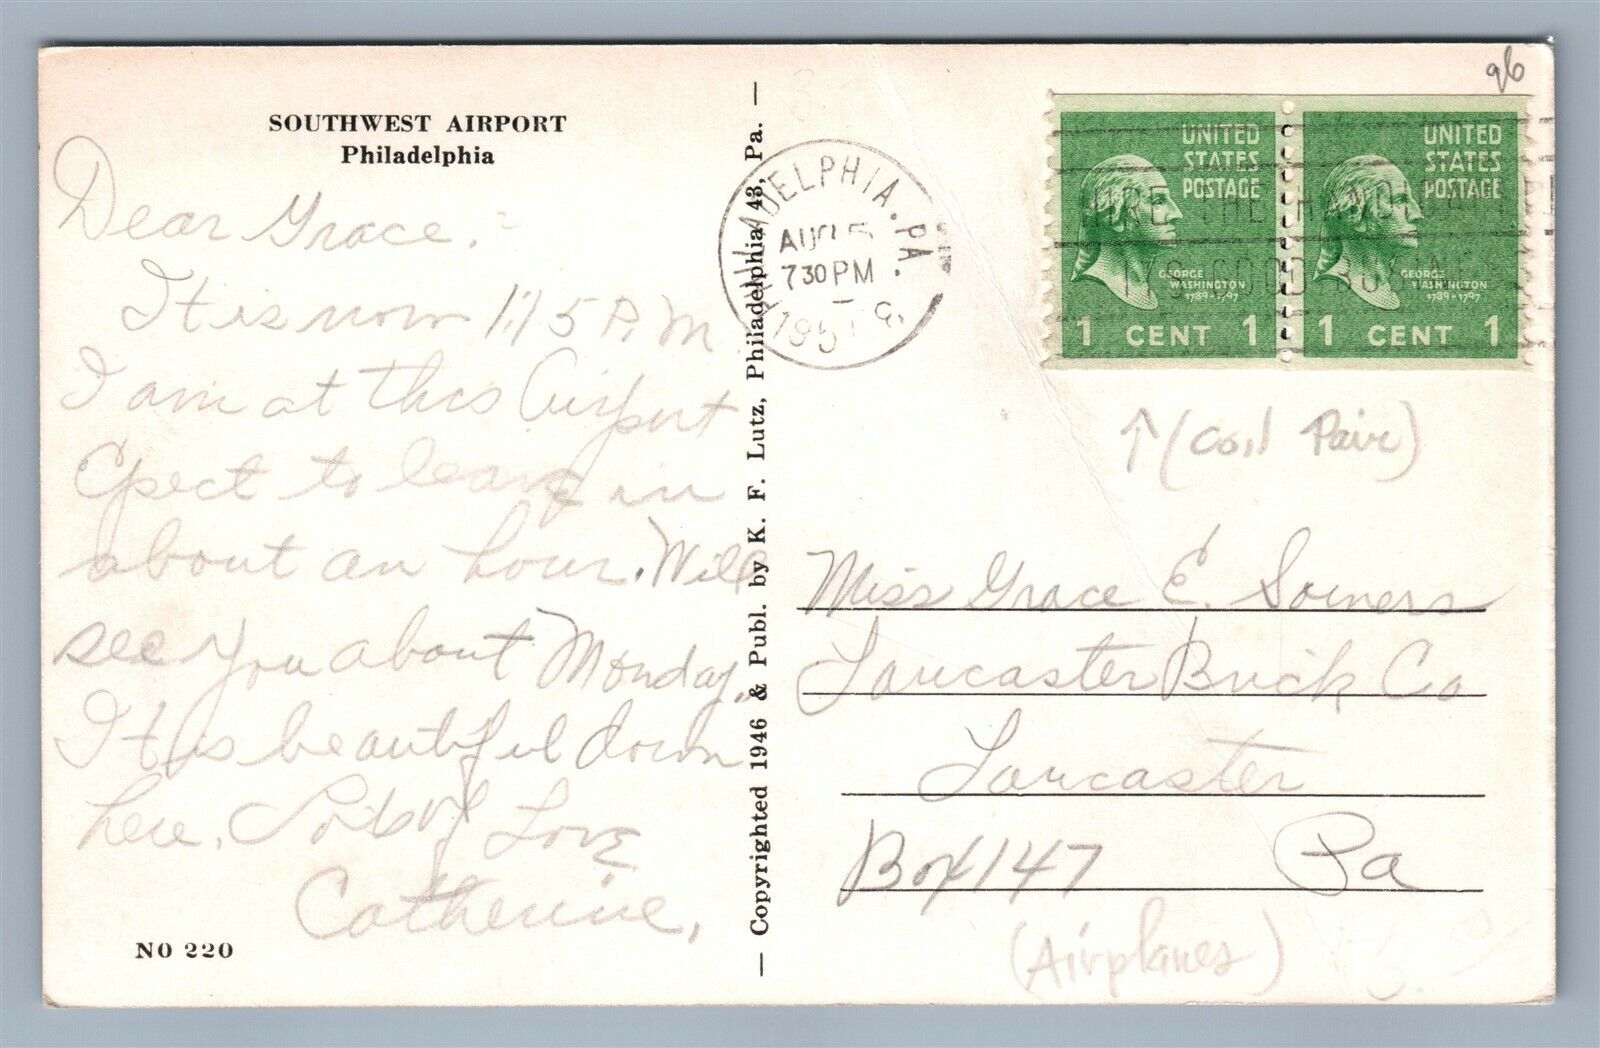 SOUTHWEST AIRPORT
Philadelphia
Dear Grace,
It is now 1:15 P.M
I am at this Airport
Expect to leave in
about an hour. Will
see you about Monday.
It is beautiful down
here. Lots of Love
Catherine,
NO 220
— Copyrighted 1946 & Publ. by K. F. Lutz, Philadelphia 43, Pa. —
PHILADELPHIA, PA.
AUG
730 PM
195
96
UNITED
STATES
POSTAGE
GEORGE
WASHINGTON
1789-1797
1 CENT 1
UNITED
STATES
POSTAGE
GEORGE
WASHINGTON
1789-1797
1 CENT 1
↑ (Coil Pair)
Miss Grace E. Somers
Lancaster Brick Co
Lancaster
Box 147 Pa
(Airplanes)